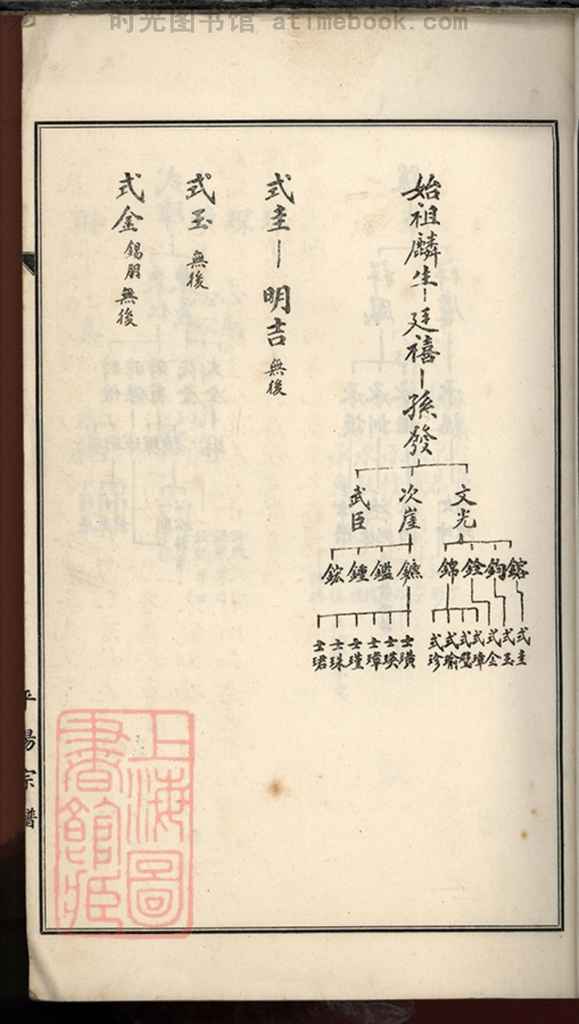 时光图书馆 atimebook.com
始祖麟生 廷禧 孫發
文光
次崖
武臣
鎔 鈞 銓 錦
鑣 鑑 鍾 鋐
式圭 式玉 式金 式璋 式璧 式瑜 式珍
士璜 士瑛 士璋 士瑾 士珠 士珺
式圭 明吉 無後
式玉 無後
式金 錫朋 無後
平陽宗譜
上海圖書館藏